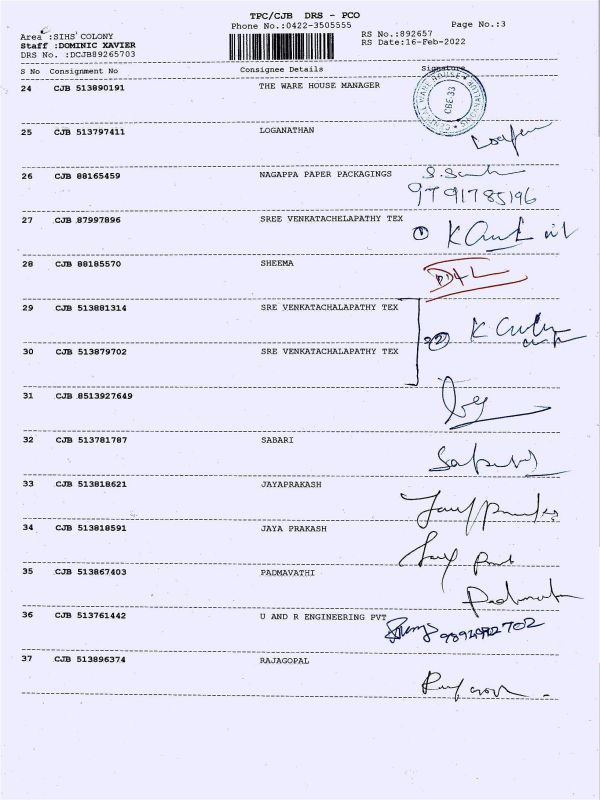 TPC/CJB DRS - PCO
Phone No.:0422-3505555
Page No.:3
Area :SIHS COLONY
RS No.:892657
Staff :DOMINIC XAVIER
RS Date:16-Feb-2022
DRS No. :DCJB89265703
S No Consignment No Consignee Details Signature
24 CJB 513890191 THE WARE HOUSE MANAGER
CBE-33
25 CJB 513797411 LOGANATHAN
26 CJB 88165459 NAGAPPA PAPER PACKAGINGS
9791785196
27 CJB 87997896 SREE VENKATACHELAPATHY TEX
28 CJB 88185570 SHEEMA
29 CJB 513881314 SRE VENKATACHALAPATHY TEX
30 CJB 513879702 SRE VENKATACHALAPATHY TEX
31 CJB 8513927649
32 CJB 513781787 SABARI
33 CJB 513818621 JAYAPRAKASH
34 CJB 513818591 JAYA PRAKASH
35 CJB 513867403 PADMAVATHI
36 CJB 513761442 U AND R ENGINEERING PVT
37 CJB 513896374 RAJAGOPAL